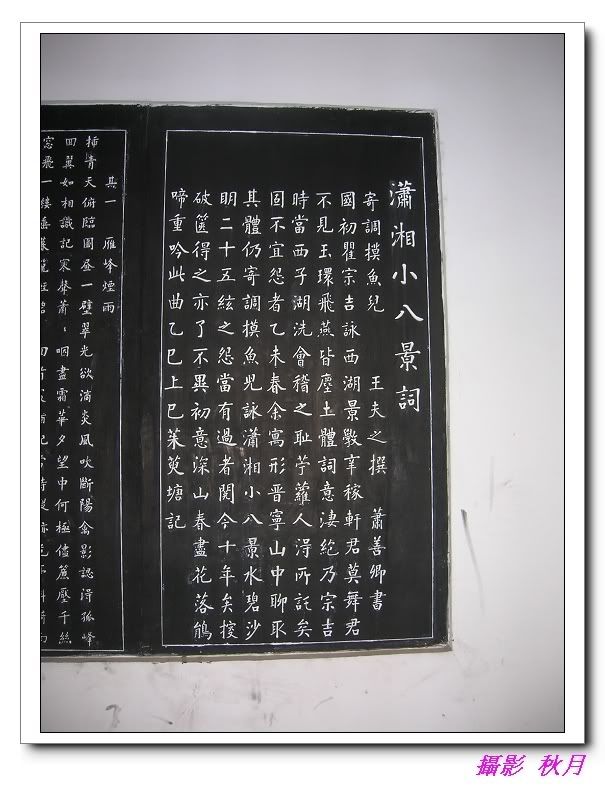 瀟湘小八景詞
寄調摸魚兒 王夫之撰 蕭善卿書
國初瞿宗吉詠西湖景斆辛稼軒君莫舞君
不見玉環飛燕皆塵土體詞意淒絶乃宗吉
時當西子湖洗會稽之恥苧蘿人得所託矣
固不宜怨者乙未春余寓形晋寧山中聊取
其體仍寄調摸魚兒詠瀟湘小八景水碧沙
明二十五絃之怨當有過者閱今十年矣搜
破篋得之亦了不異初意深山春盡花落鵃
啼重吟此曲乙巳上巳茱萸塘記
其一 雁峰煙雨
插青天俯臨圖畫一壁翠光欲滴炎風吹斷陽禽影認得孤峰
回翼如相識記寒聲蕭蕭咽盡霜華夕望中何極儘簾壓千絲
窓飛一縷
攝影 秋月